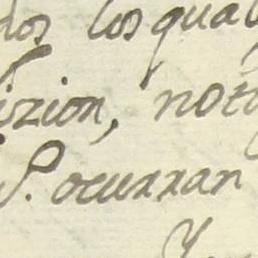 dos los qual
iszion, noto
S. ocurran
Y